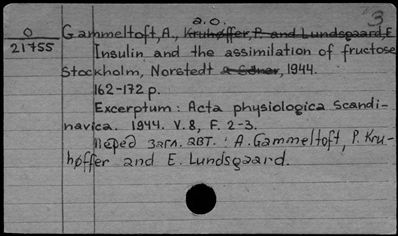 a.o. 3
0 Gammeltoft, A., Kruhøffer, P. and Lundsgaard, E
21755 Insulin and the assimilation of fructose
Stockholm, Norstedt a. Söner, 1944.
162-172 p.
Excerptum: Acta physiologica Scandi-
navica. 1944. V.8, F. 2-3.
Перед загл. авт.: A. Gammeltoft, P. Kru-
høffer and E. Lundsgaard.